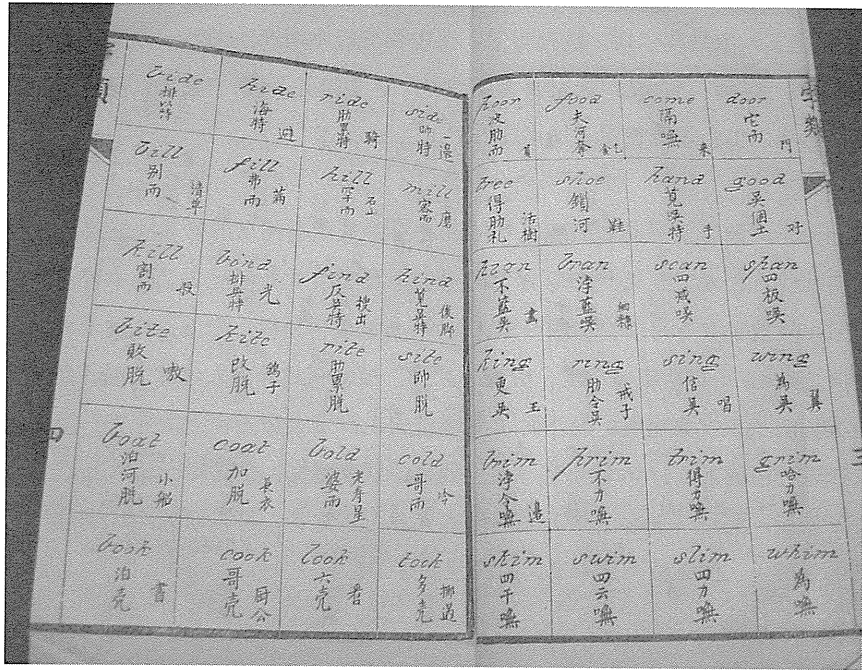 字類
bide
hide
海特
避
ride
肋里特
騎
side
帥特
一邊
bill
别而
清單
fill
弗而
滿
hill
罕而
石山
mill
密而
磨
kill
割而
殺
bind
find
反吳特
搜出
hind
莧吳特
後脚
bite
敗脱
嗷
kite
改脱
鷂子
rite
肋里脱
site
帥脱
boat
泊河脱
小船
coat
加脱
bold
婆而
老壽星
cold
哥而
冷
book
泊壳
書
cook
哥壳
厨公
look
六壳
看
took
多壳
挪過
四
字類
poor
波肋而
貧
food
夫河奪
come
隔嘸
來
door
它而
門
tree
得肋札
活樹
shoe
鎖河
鞋
hand
莧吳特
手
good
吳個土
好
plan
不藍吳
bran
浮藍噗
細糠
scan
四咸噗
span
四板噗
king
更吳
王
ring
肋令吳
戒子
sing
信吳
唱
wing
為吳
翼
brim
浮令嘸
邊
prim
不力嘸
trim
得力嘸
grim
哈力嘸
skim
四干嘸
swim
四云嘸
slim
四力嘸
whim
為嘸
三